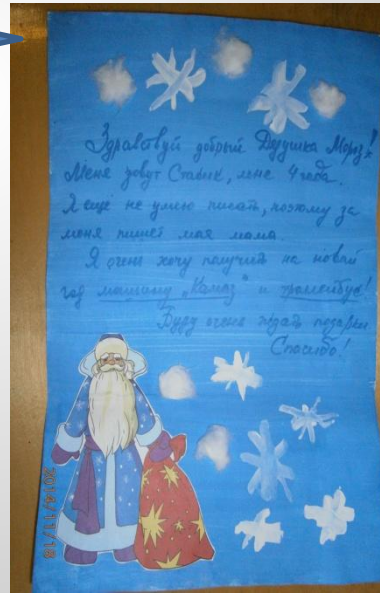 Здравствуй добрый Дедушка Мороз!
Меня зовут Славик, мне 4 года.
Я ещё не умею писать, поэтому за
меня пишет моя мама.
Я очень хочу получить на новый
год машину "Камаз" и троллейбус!
Буду очень ждать подарки
Спасибо!
2014/11/18